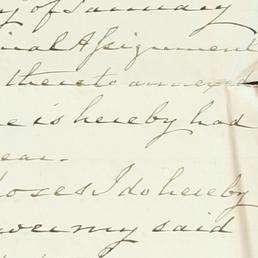 y of January
inal Assignment
thereto annexed
e is hereby had
ear.
poses I do hereby
wer my said